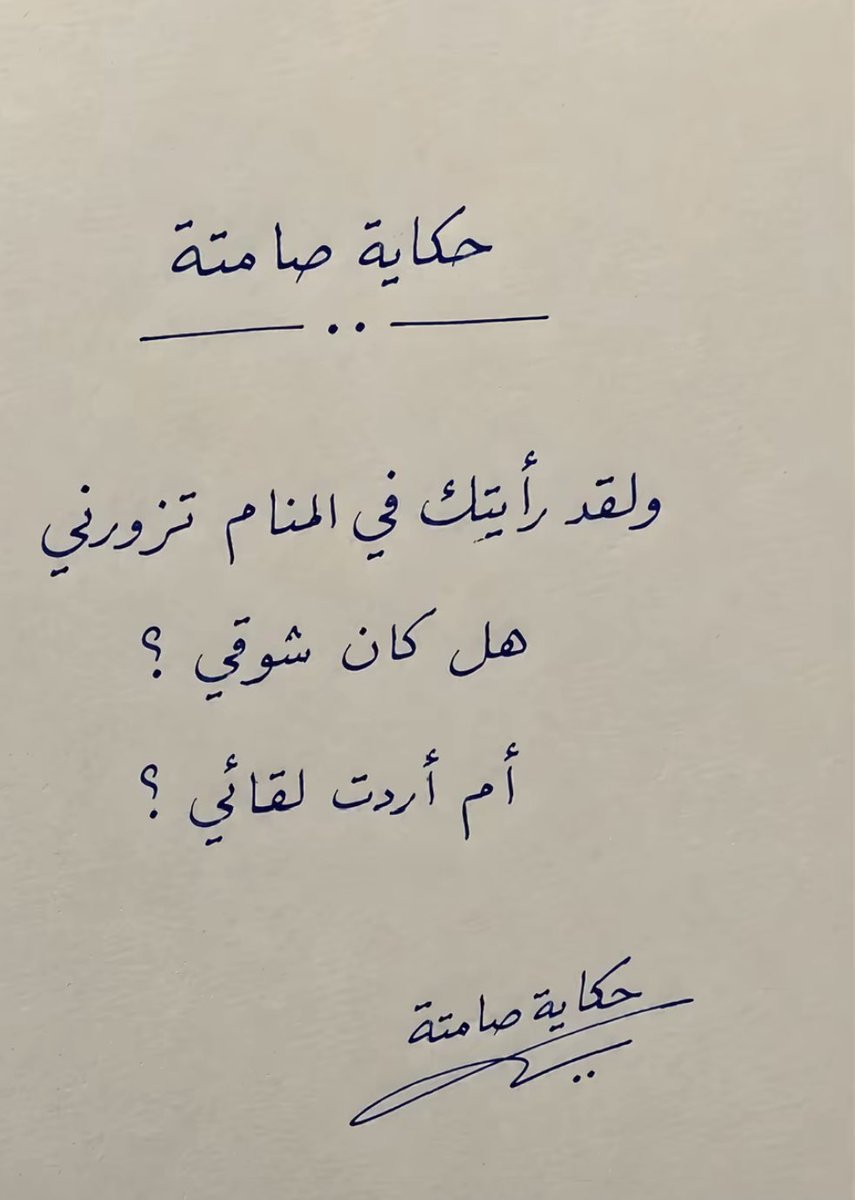 حكاية صامتة
ولقد رأيتك في المنام تزورني
هل كان شوقي ؟
أم أردت لقائي ؟
حكاية صامتة